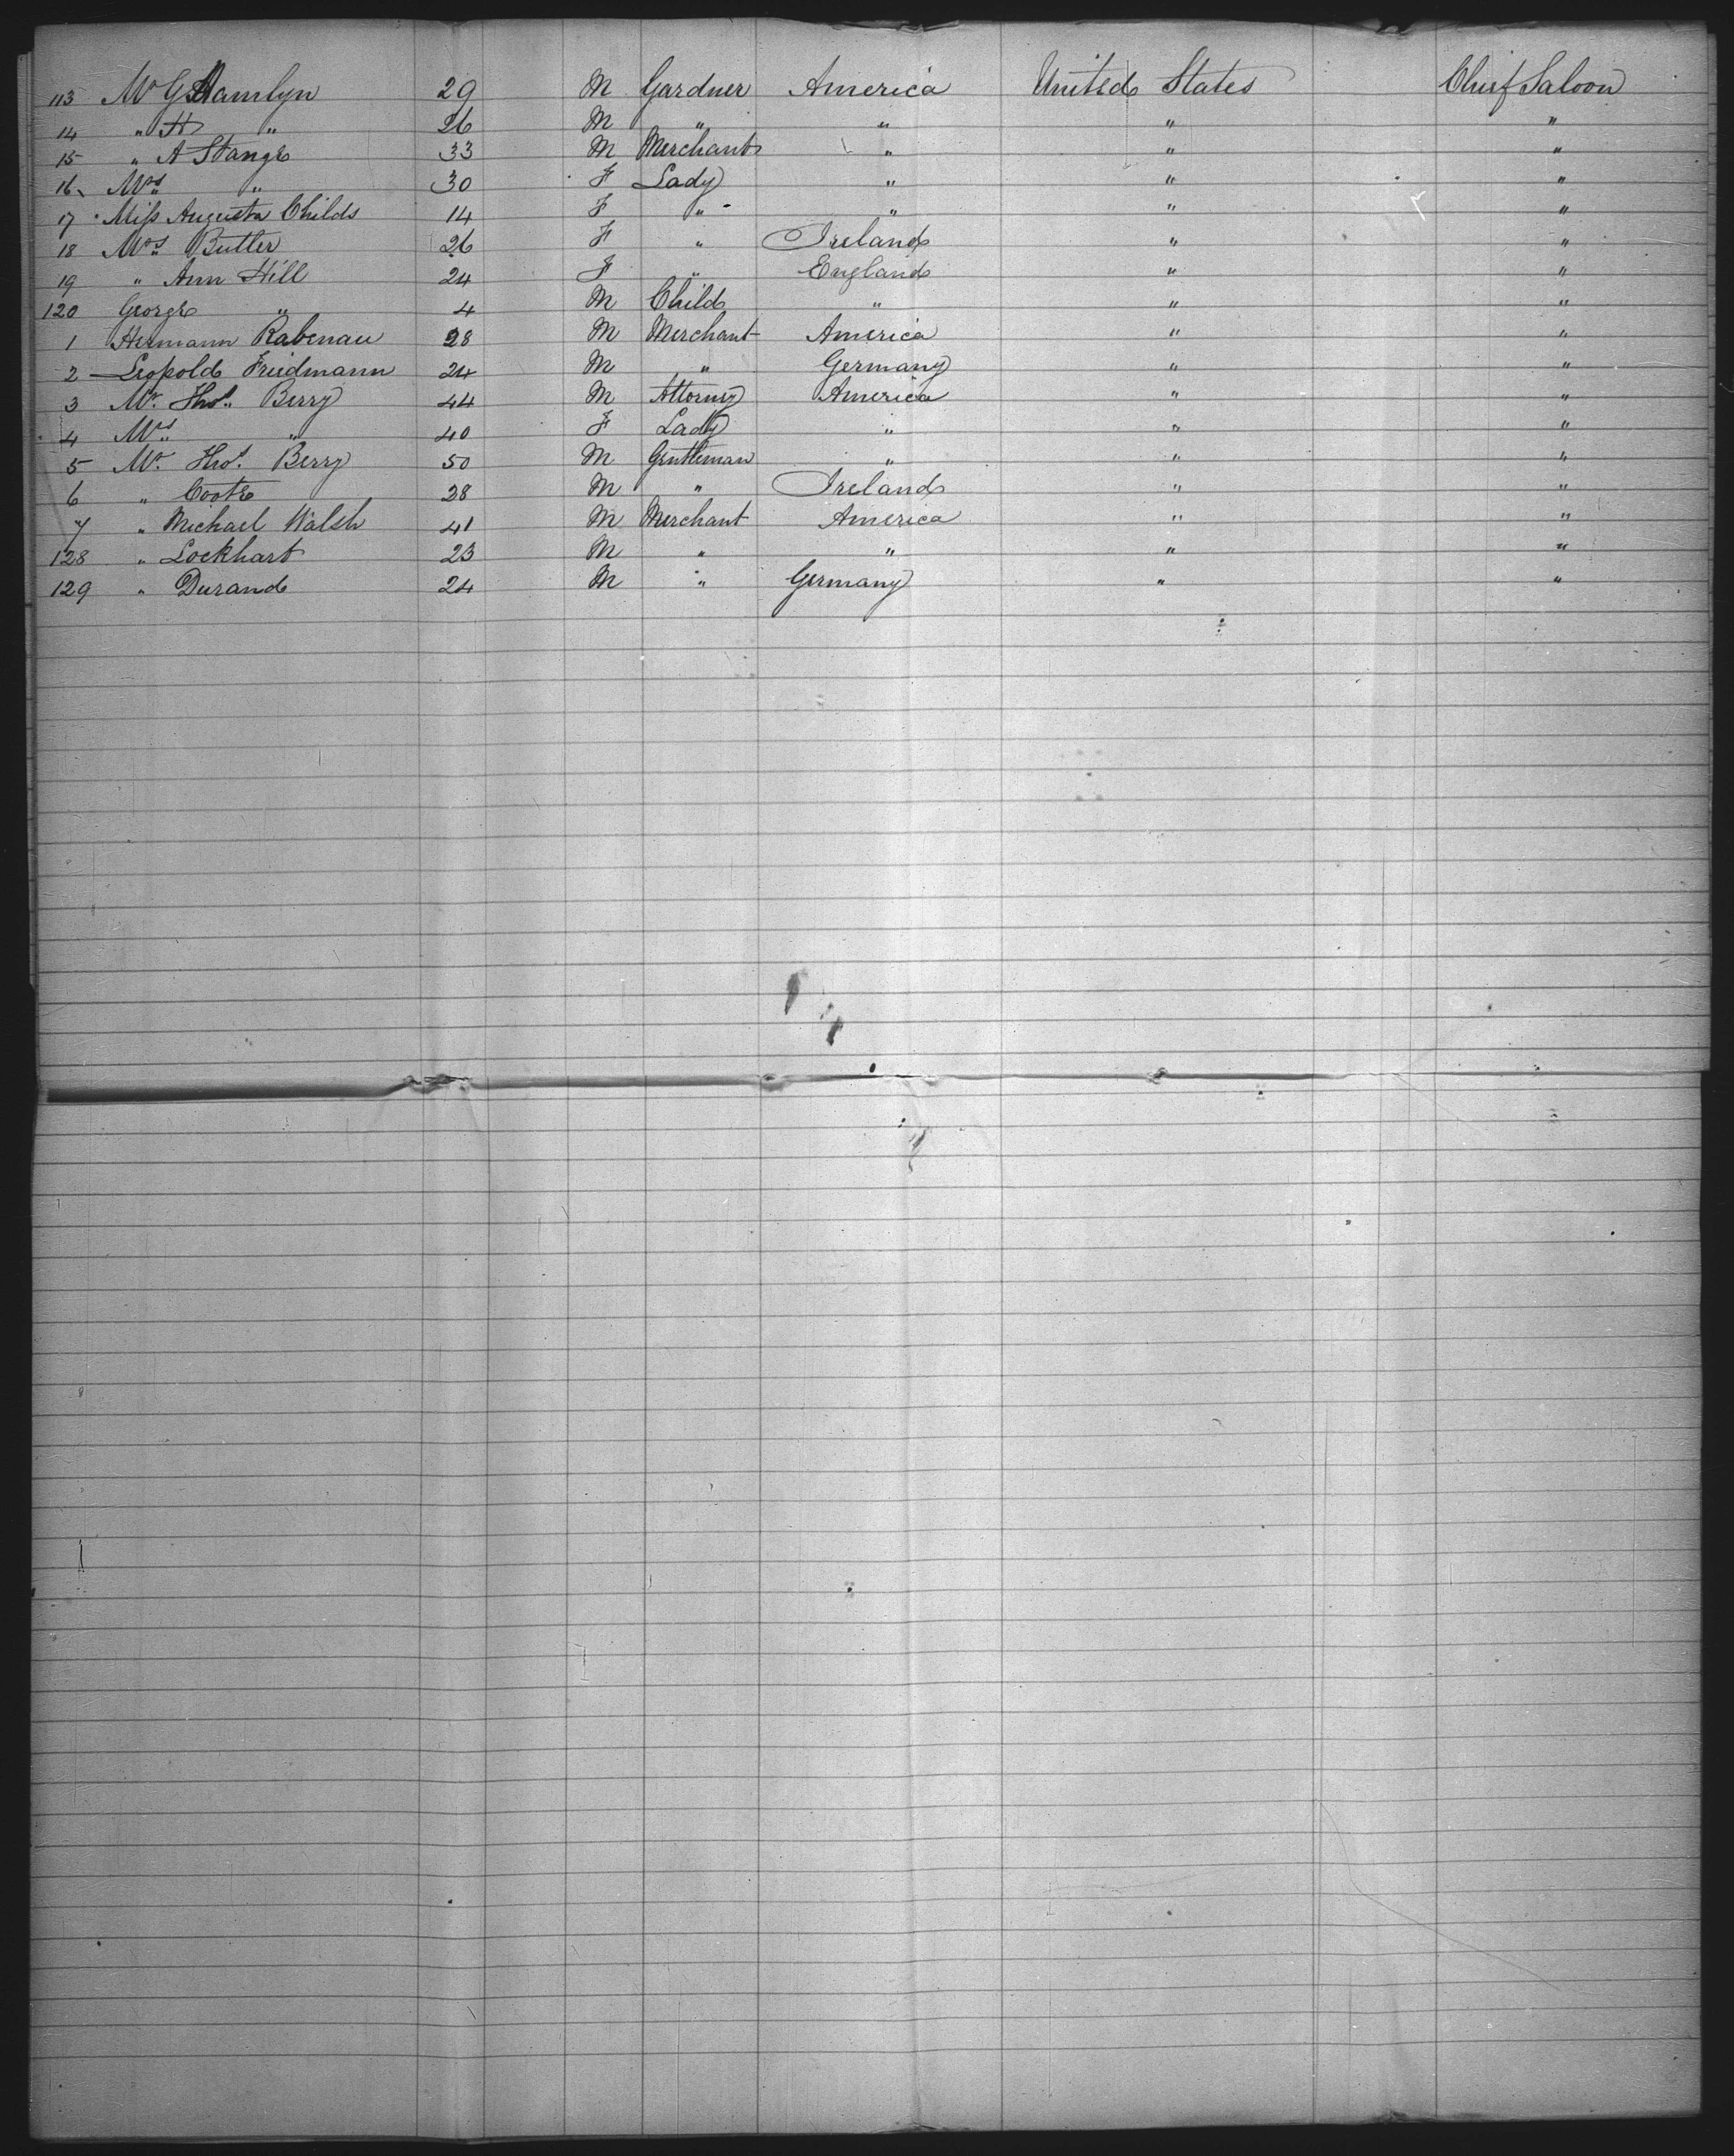 113 Mr G Hamlyn 29 M Gardner America United States Chief Saloon
14 " H " 26 M " " " "
15 " A Stange 33 M Merchant " " "
16 Mrs " 30 F Lady " " "
17 Miss Augusta Childs 14 F " " " "
18 Mrs Butler 26 F " Ireland " "
19 " Ann Hill 24 F " England " "
120 George " 4 M Child " " "
1 Hermann Rabenau 28 M Merchant America " "
2 Leopold Friedmann 24 M " Germany " "
3 Mr. Thos. Berry 44 M Attorney America " "
4 Mrs " 40 F Lady " " "
5 Mr. Thos. Berry 50 M Gentleman " " "
6 " Coote 28 M " Ireland " "
7 " Michael Walsh 41 M Merchant America " "
128 " Lockhart 23 M " " " "
129 " Durand 24 M " Germany " "